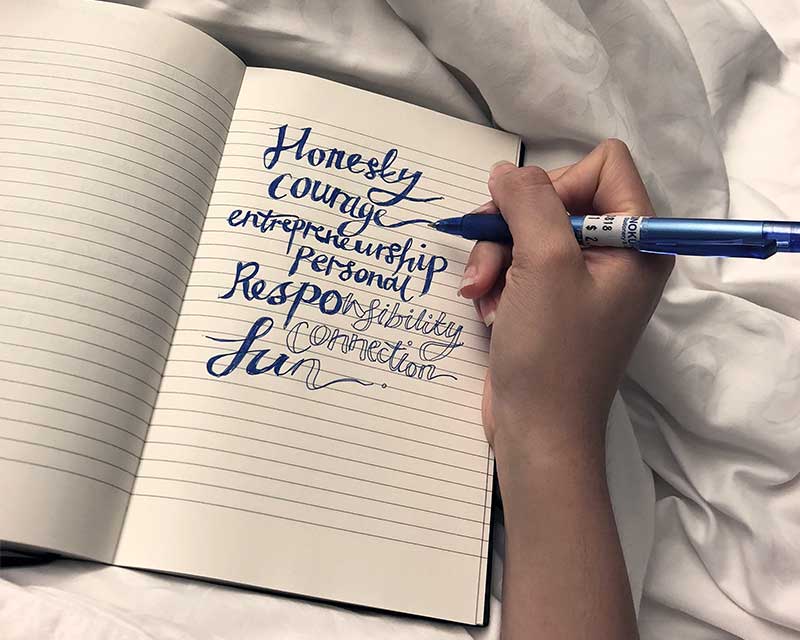 Honesty
courage
entrepreneurship
personal
Responsibility
connection
fun